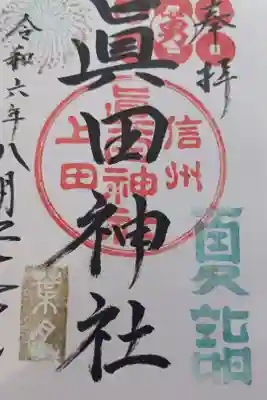 奉拝
眞田神社
信州
上田
夏詣
葉月
令和六年八月二